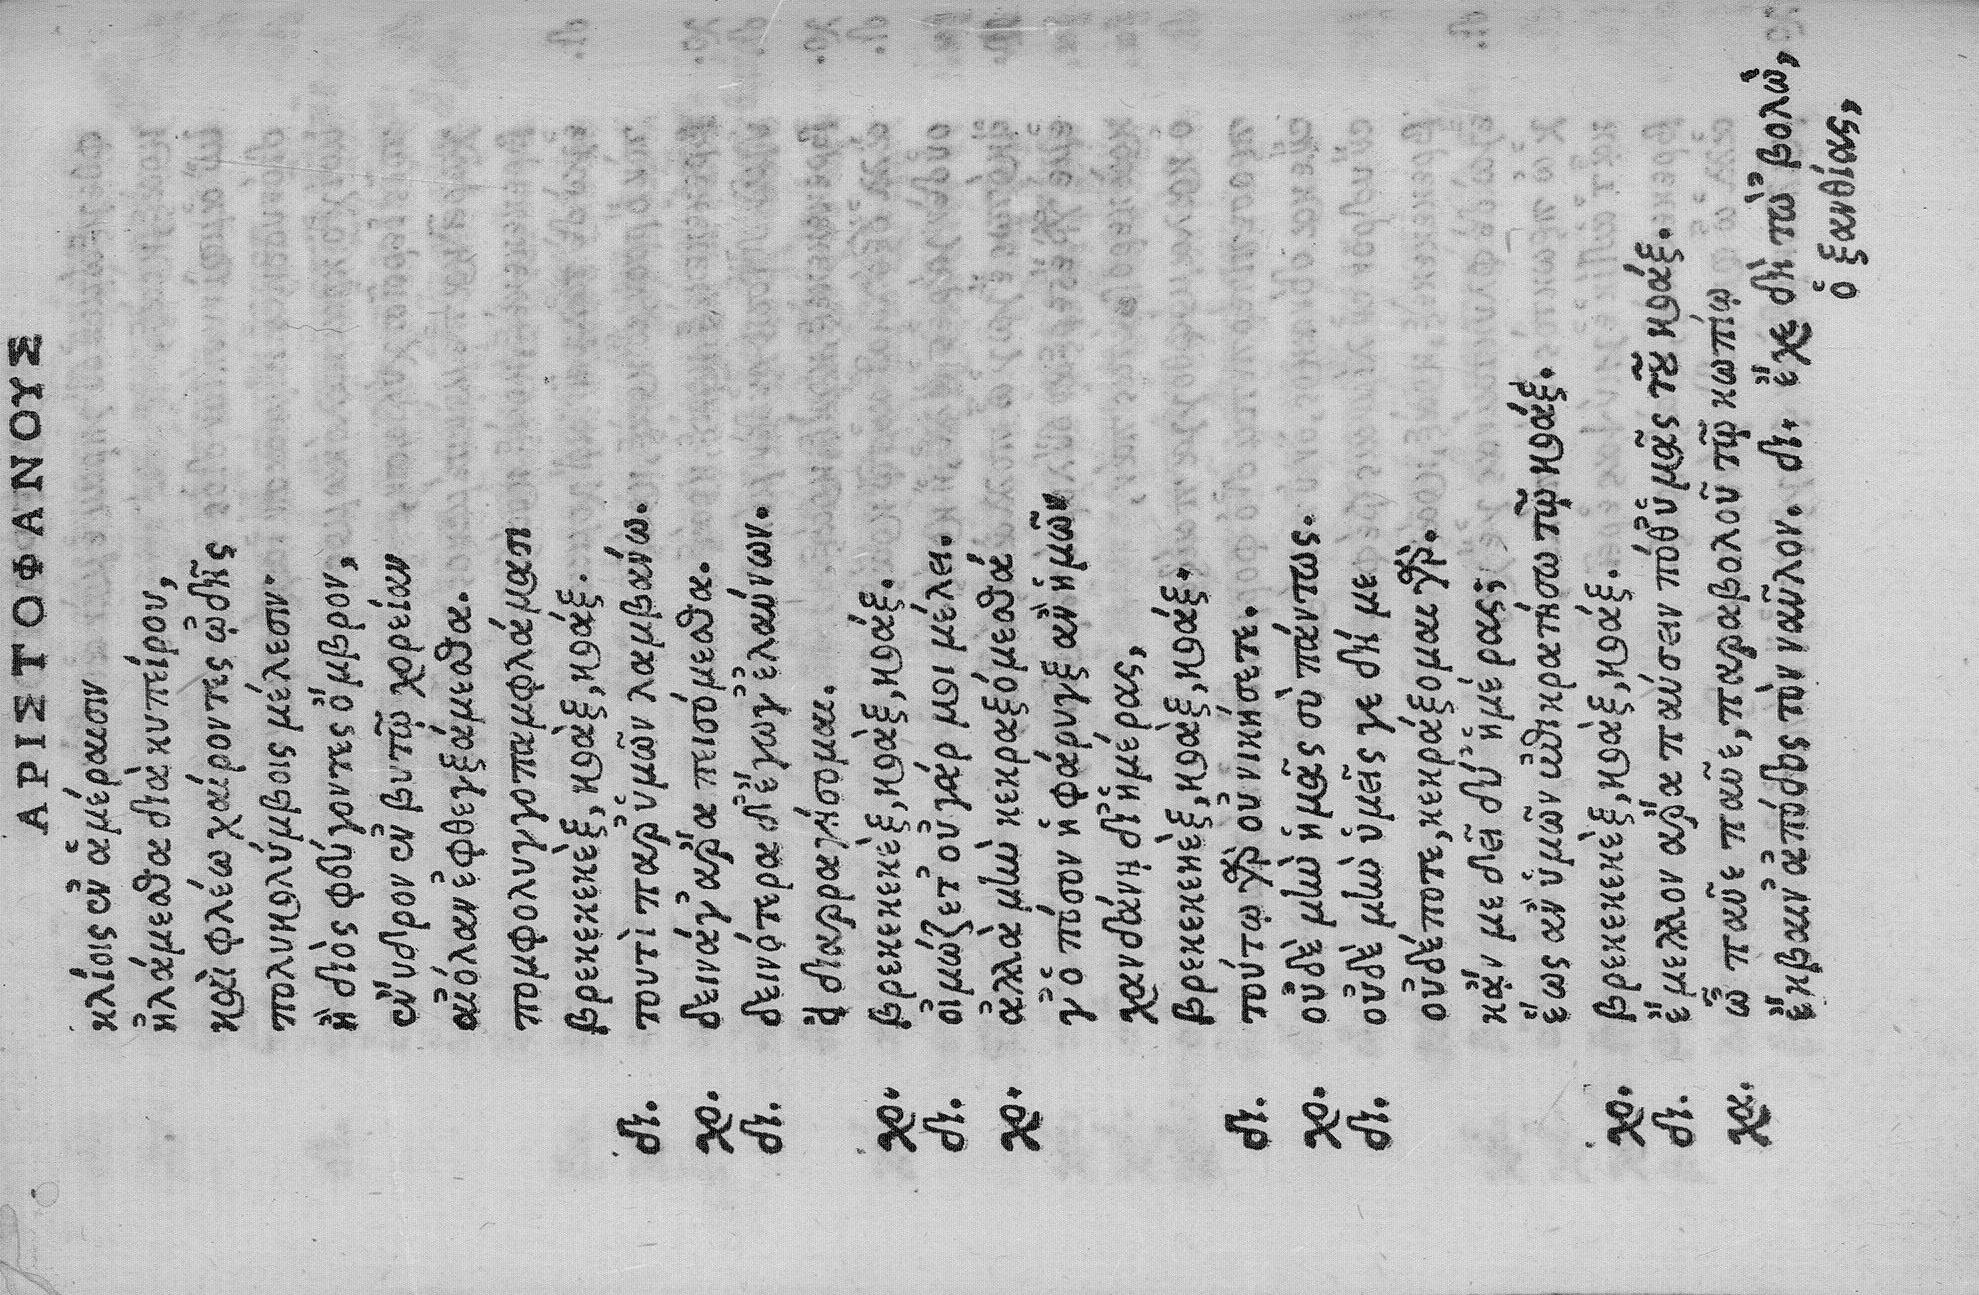 ΑΡΙΣΤΟΦΑΝΟΥΣ
κλίοις ἐν ἁμέραισιν
ἡλάμεσθα διὰ κυπείρου,
καὶ φλέω χαίροντες ᾠδῆς
πολυκολύμβοις μέλεσιν.
ἢ διὸς φεύγοντες ὄμβρον,
ἔνυδρον ἐν βυτῷ χορείαν
αἰόλαν ἐφθεγξάμεσθα.
πομφολυγγοπαμφλάμασι
βρεκεκεκὲξ, κοὰξ, κοάξ.
δι. τουτὶ παρ' ὑμῶν λαμβάνω.
χο. δεινά γ' ἄρα πεισόμεσθα.
δι. δεινότερα δ' ἔγωγ' ἐλαύνων.
ἢ διαρραγήσομαι.
χο. βρεκεκεκὲξ, κοὰξ, κοάξ.
δι. οἰμώζετ' οὐ γάρ μοι μέλει.
χο. ἀλλὰ μὴν κεκραξόμεσθά
γ' ὁπόσον ἡ φάρυγξ ἂν ἡμῶν
χανδάνῃ δι' ἡμέρας,
βρεκεκεκὲξ, κοὰξ, κοάξ.
δι. τούτῳ γὰρ οὐ νικήσετε.
χο. οὐδὲ μὴν ἡμᾶς σὺ πάντως.
δι. οὐδὲ μὴν ὑμεῖς γε δή με
οὐδέποτε, κεκράξομαι γὰρ.
κἄν με δεῖ δι' ἡμέρας;
ἕως ἂν ὑμῶν ἐπικρατήσω τῷ κοάξ.
χο. βρεκεκεκὲξ, κοὰξ, κοάξ.
δι. ἔμελλον ἄρα παύσειν ποθ' ὑμᾶς τοῦ κοάξ.
χα. ὢ παῦε παῦε, παραβολοῦ τῷ κωπίῳ
ἔκβαιν' ἀπόδος τὸν ναῦλον. δι. ἔχε δὴ τὼ 'βολὼ,
ὁ ξανθίας,